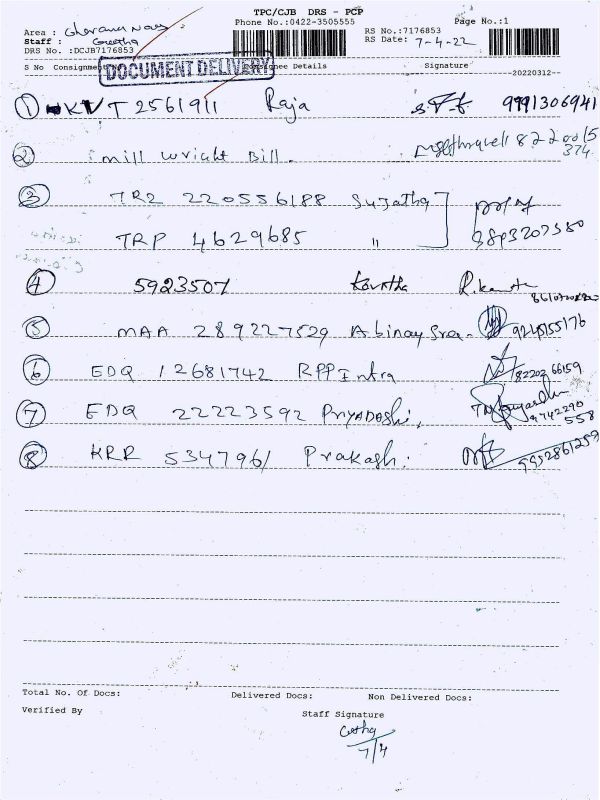 TPC/CJB DRS - PCP
Phone No.:0422-3505555
Page No.:1
Area :
Staff : Geetha
DRS No. :DCJB7176853
RS No.:7176853
RS Date: 7-4-22
S No Consignment Consignee Details Signature
DOCUMENT DELIVERY
--20220312--
1 KVT 2561911 Raja 9991306941
2 mill wright Bill. 82200 15 374
3 TR2 220556188 Sujatha
TRP 4629685 " 9893207380
4 5923507 Kavitha R.Kavitha
5 MAA 289227529 Abinaysree 9245155176
6 EDQ 12681742 RPP Infra 82202 66159
7 EDQ 22223592 Priyadoshi, 9742290 558
8 KRR 5347961 Prakash. 9952861259
Total No. Of Docs: Delivered Docs: Non Delivered Docs:
Verified By Staff Signature
7/4